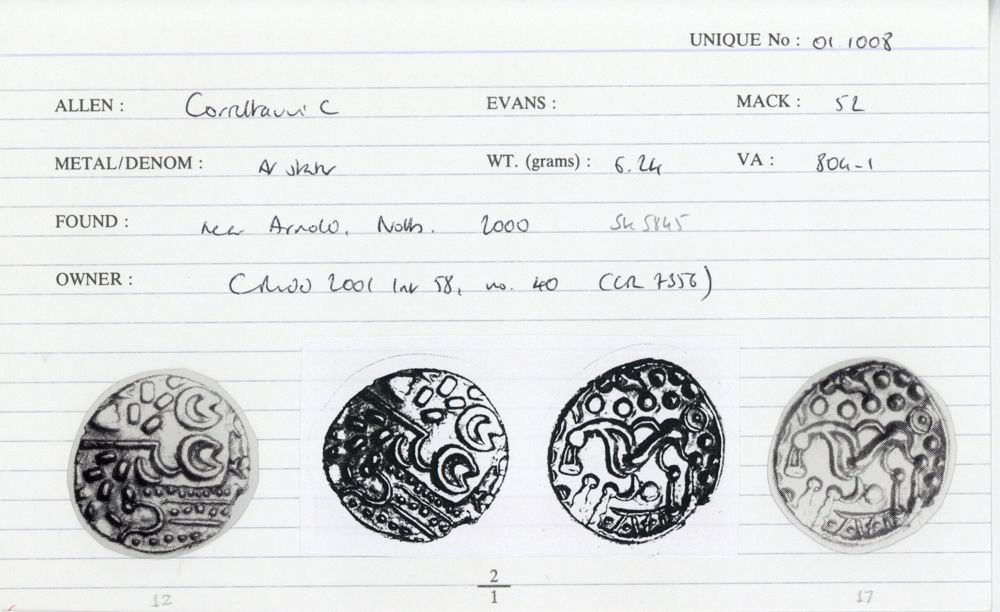 UNIQUE No : 01.1008
ALLEN : Corieltauvi C EVANS : MACK : 52
METAL/DENOM : AV stater WT. (grams) : 6.24 VA : 804-1
FOUND : near Arnold, Notts. 2000 SK 5845
OWNER : CRWO 2001 list 58, no. 40 (CR 7356)
2
12 1 17